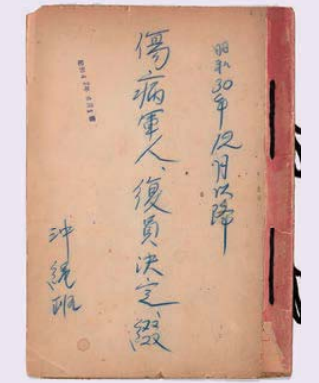 昭和30年12月以降
傷病軍人、復員決定、綴
沖縄班